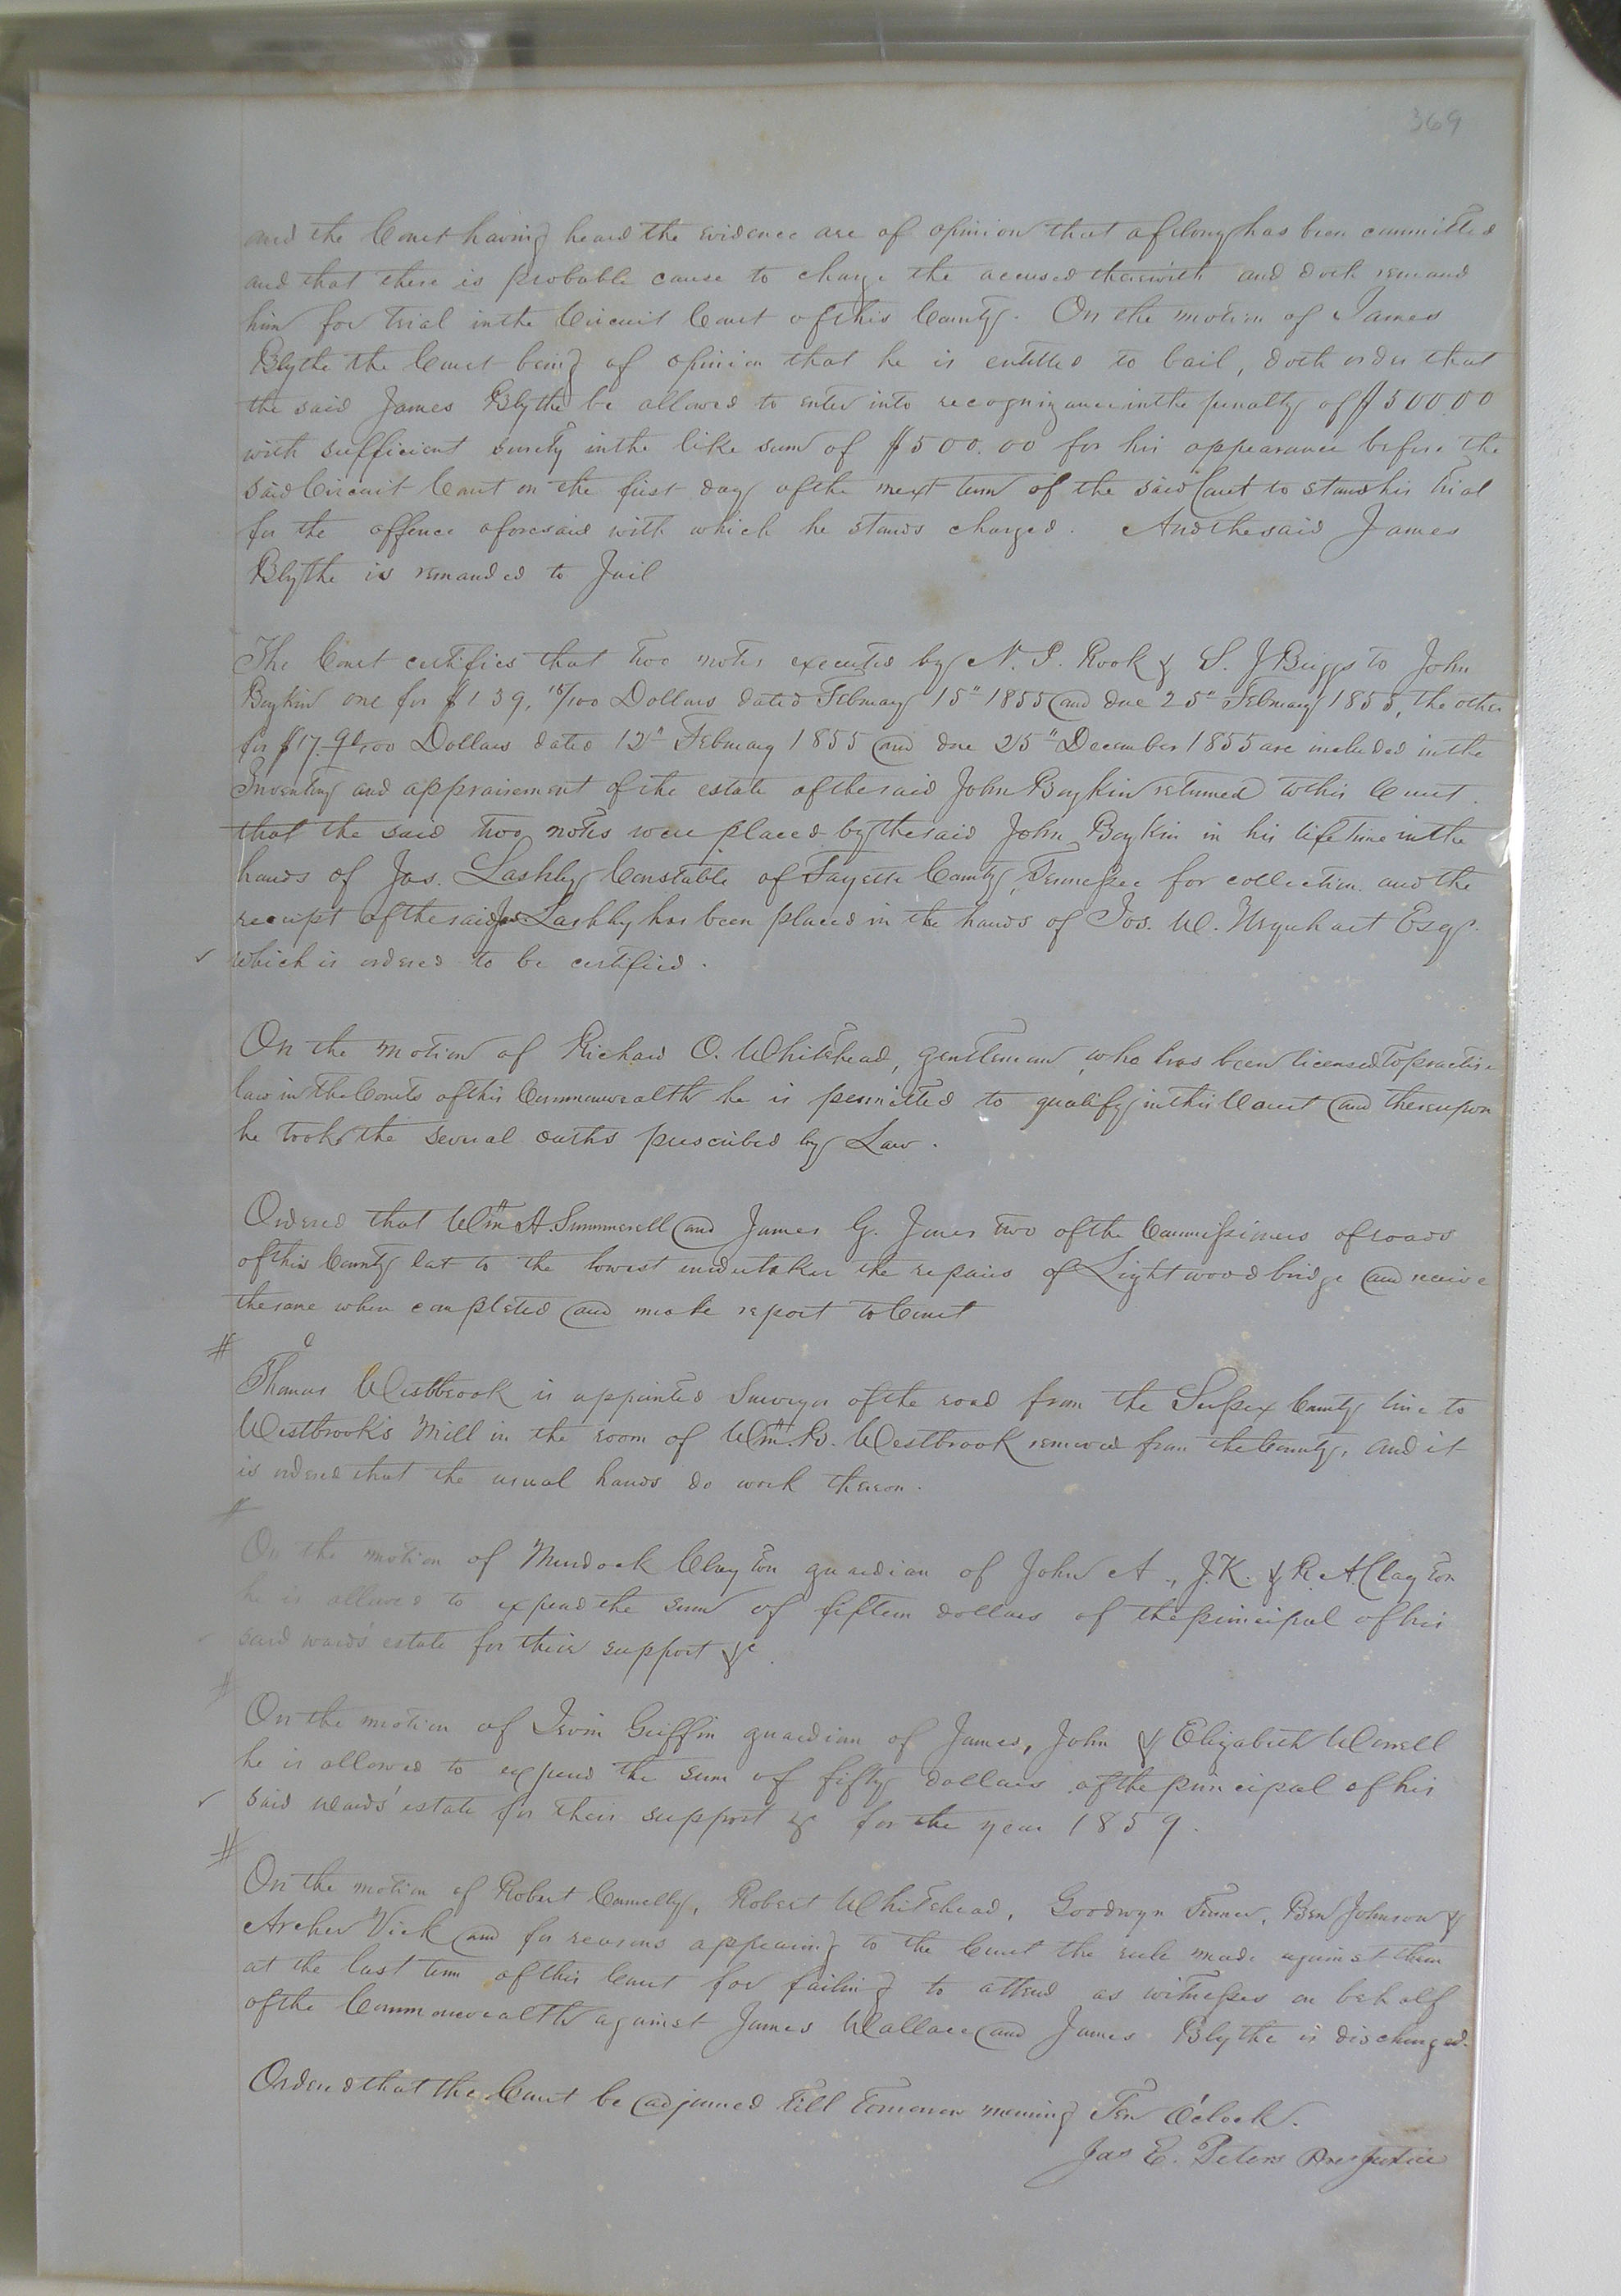 369
and the Court having heard the evidence are of opinion that a felony has been committed
and that there is probable cause to charge the accused therewith and doth remand
him for trial in the Circuit Court of this County. On the motion of James
Blythe the Court being of opinion that he is entitled to bail, doth order that
the said James Blythe be allowed to enter into recognizance in the penalty of $500.00
with sufficient surety in the like sum of $500.00 for his appearance before the
said Circuit Court on the first day of the next term of the said Court to stand his trial
for the offence aforesaid with which he stands charged. And the said James
Blythe is remanded to Jail
The Court certifies that two notes executed by N. P. Rook & S. J Briggs to John
Boykin one for $139, 15/100 Dollars dated February 15" 1855 and due 25" February 1855, the other
for $17. 91/100 Dollars dated 12" February 1855 and due 25" December 1855 are included in the
Inventory and appraisement of the estate of the said John Boykin returned to this Court.
that the said two notes were placed by the said John Boykin in his life time in the
hands of Jas. Lashly Constable of Fayette County, Tennessee for collection and the
receipt of the said Jas Lashly has been placed in the hands of Jos. W. Urquhart Esqr.
which is ordered to be certified.
On the motion of Richard O. Whitehead, gentleman, who has been licensed to practise
law in the Courts of this Commonwealth he is permitted to qualify in this Court and thereupon
he took the several oaths prescribed by Law.
Ordered that Wm H. Summerell and James G. Jones two of the Commissioners of roads
of this County let to the lowest undertaker the repairs of Lightwood bridge and receive
the same when completed and make report to Court
#
Thomas Westbrook is appointed Surveyor of the road from the Sussex County line to
Westbrook's Mill in the room of Wm. B. Westbrook removed from the County, and it
is ordered that the usual hands do work thereon.
#
On the motion of Murdock Clayton guardian of John A., J.K. & R. A. Clayton
he is allowed to expend the sum of fifteen dollars of the principal of his
said wards' estate for their support &c.
#
On the motion of Irvin Griffin guardian of James, John & Elizabeth Worrell
he is allowed to expend the sum of fifty dollars of the principal of his
said wards' estate for their support &c for the year 1859.
#
On the motion of Robert Connelly, Robert Whitehead, Goodwyn Turner, Ben Johnson &
Archer Vick and for reasons appearing to the Court the rule made against them
at the last term of this Court for failing to attend as witnesses on behalf
of the Commonwealth against James Wallace and James Blythe is discharged.
Ordered that the Court be adjourned till tomorrow morning Ten O'clock.
Jas E. Peters Pres Justice